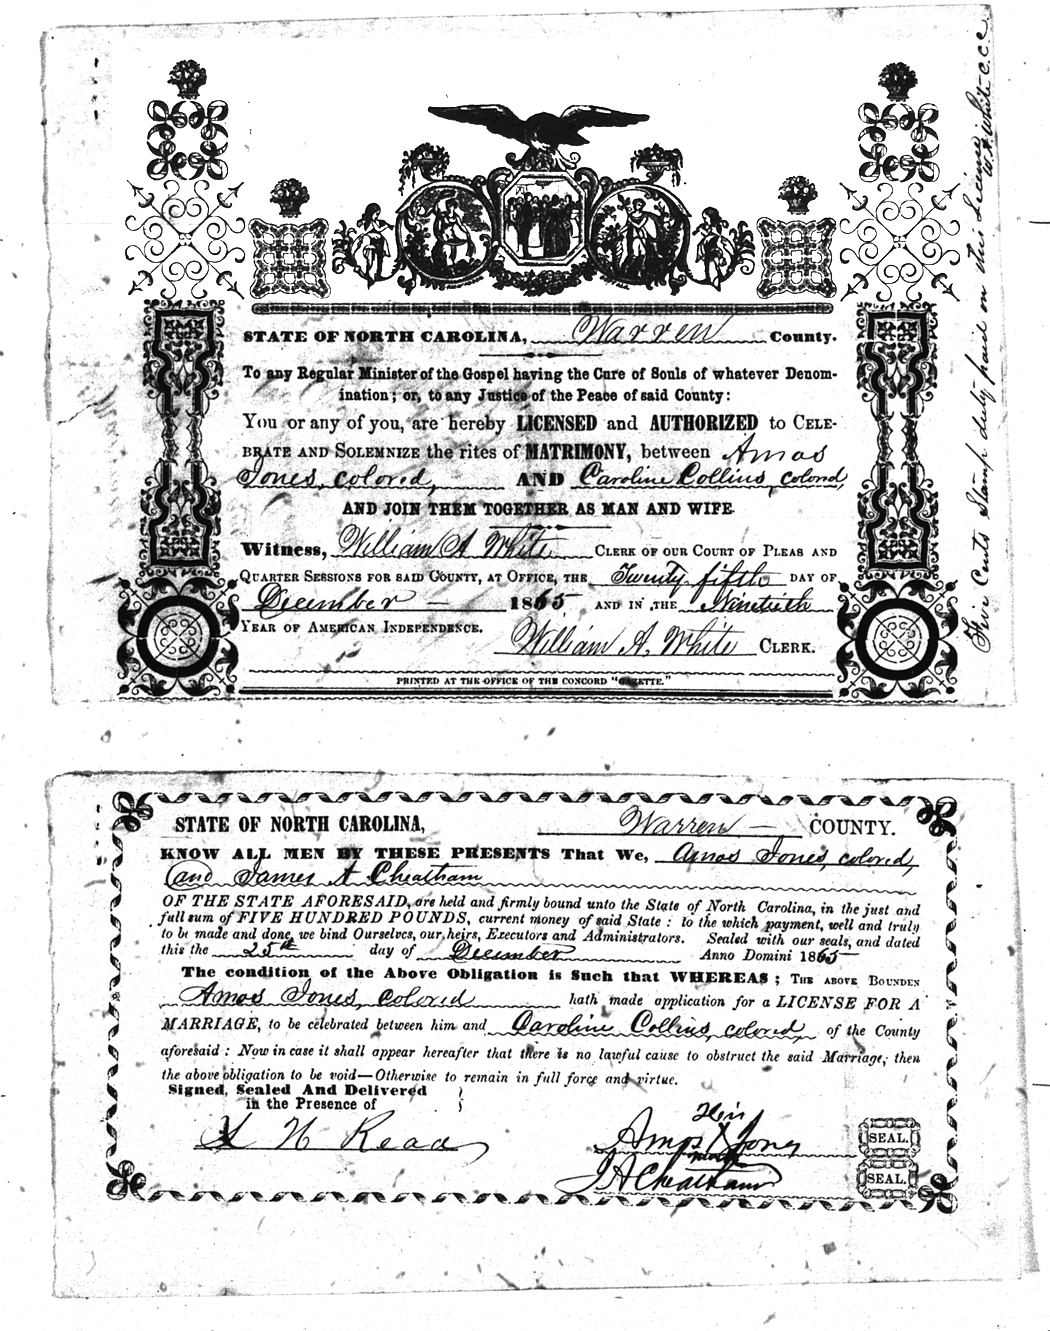 STATE OF NORTH CAROLINA, Warren County.
To any Regular Minister of the Gospel having the Cure of Souls of whatever Denom-
ination; or, to any Justice of the Peace of said County:
You or any of you, are hereby LICENSED and AUTHORIZED to CELE-
BRATE AND SOLEMNIZE the rites of MATRIMONY, between Amos
Jones, colored, AND Caroline Collins, colored,
AND JOIN THEM TOGETHER AS MAN AND WIFE.
Witness, William A White CLERK OF OUR COURT OF PLEAS AND
QUARTER SESSIONS FOR SAID COUNTY, AT OFFICE, THE Twenty fifth DAY OF
December 1865 AND IN THE Ninetieth
YEAR OF AMERICAN INDEPENDENCE.
William A. White CLERK.
PRINTED AT THE OFFICE OF THE CONCORD "GAZETTE."
Five Cents Stamp duty paid on this License by
W A White C.C.C.
STATE OF NORTH CAROLINA, Warren COUNTY.
KNOW ALL MEN BY THESE PRESENTS That We, Amos Jones, colored,
and James A Cheatham
OF THE STATE AFORESAID, are held and firmly bound unto the State of North Carolina, in the just and
full sum of FIVE HUNDRED POUNDS, current money of said State: to the which payment, well and truly
to be made and done, we bind Ourselves, our heirs, Executors and Administrators. Sealed with our seals, and dated
this the 25th day of December Anno Domini 1865
The condition of the Above Obligation is Such that WHEREAS; THE ABOVE BOUNDEN
Amos Jones, colored hath made application for a LICENSE FOR A
MARRIAGE, to be celebrated between him and Caroline Collins, colored, of the County
aforesaid: Now in case it shall appear hereafter that there is no lawful cause to obstruct the said Marriage, then
the above obligation to be void—Otherwise to remain in full force and virtue.
Signed, Sealed And Delivered
in the Presence of
his
Amos X Jones SEAL.
mark
J A Cheatham SEAL.
N Read